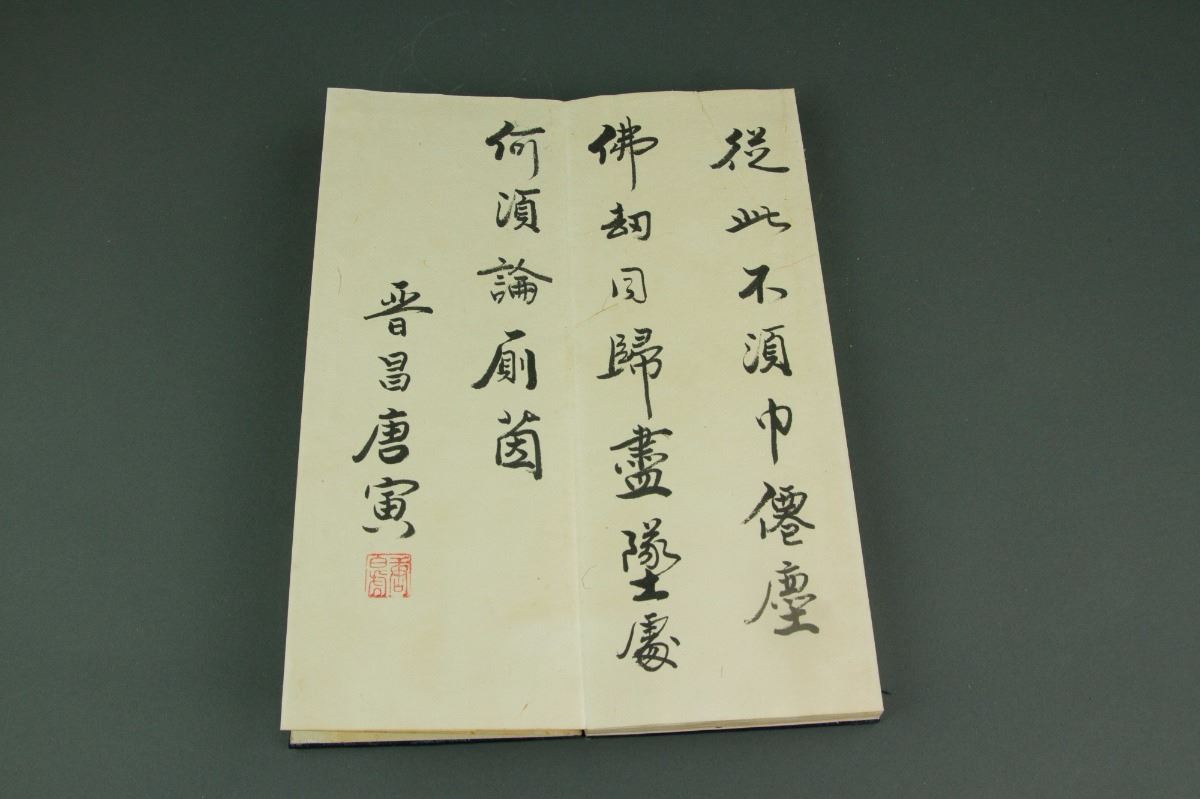 從此不須巾僊塵
佛劫同歸盡墜處
何須論廁茵
晋昌唐寅